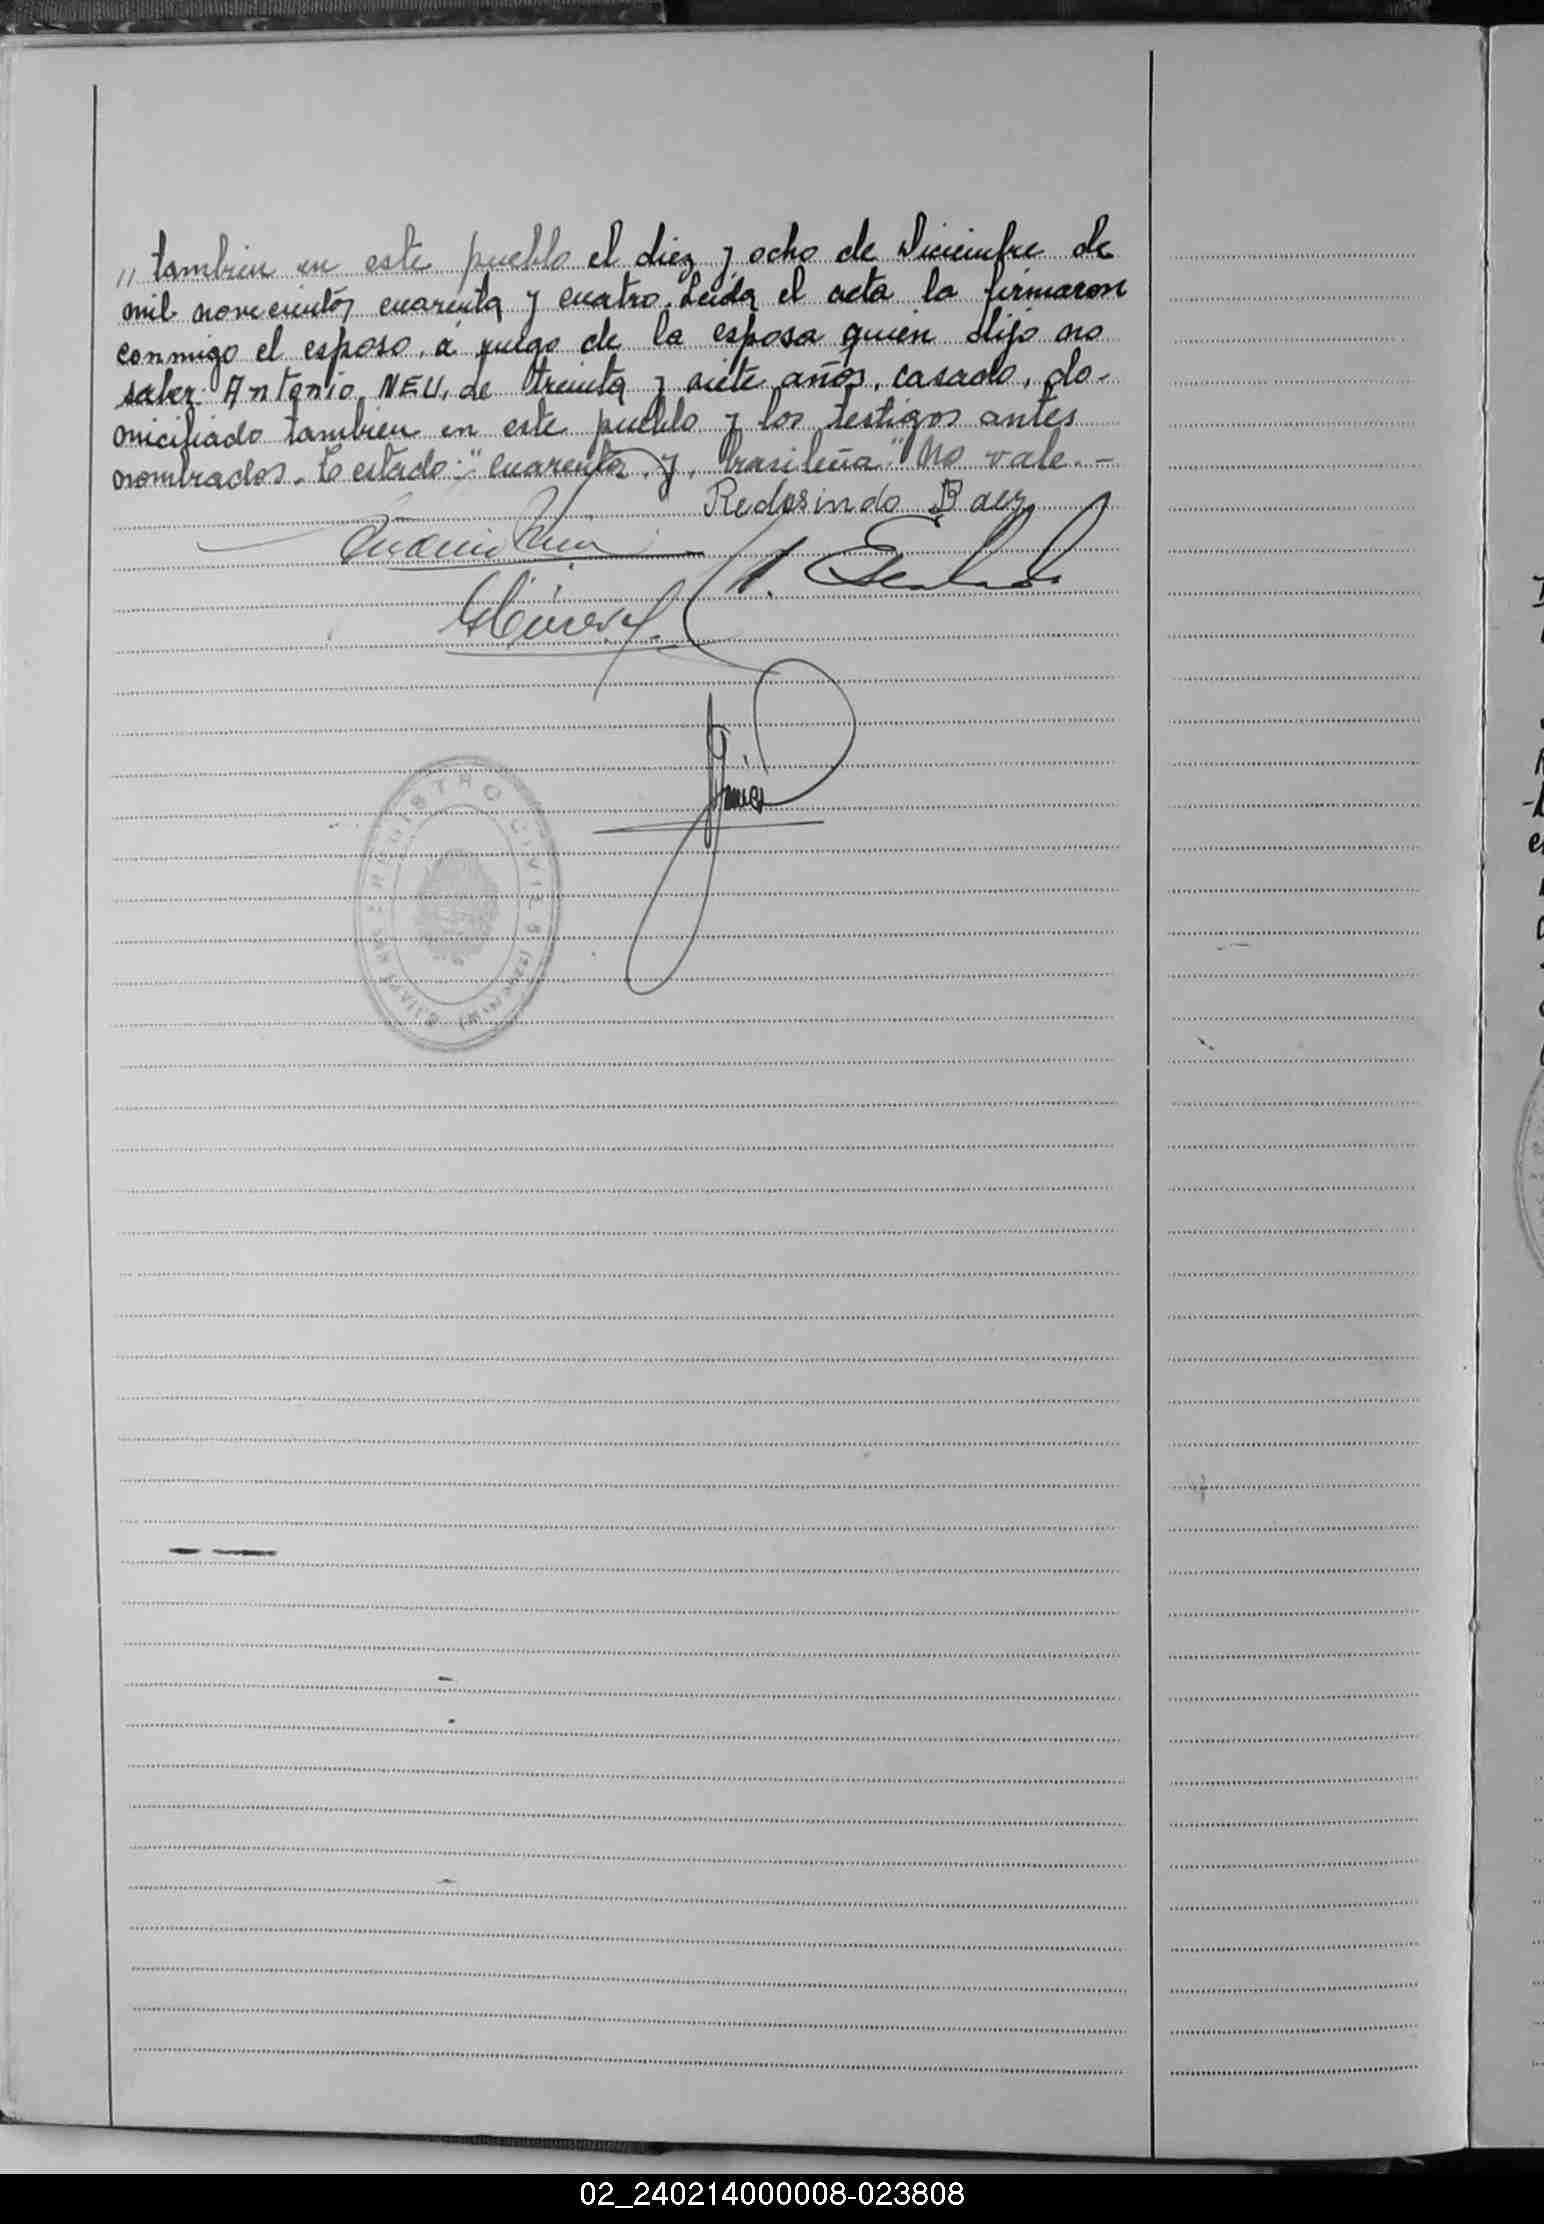 ,, tambien en este pueblo el diez y ocho de Diciembre de
mil novecientos cuarenta y cuatro. Leida el acta la firmaron
conmigo el esposo, a ruego de la esposa quien dijo no
saber Antonio NEU, de treinta y siete años, casado, do-
miciliado tambien en este pueblo y los testigos antes
nombrados. Testado: "cuarenta y, brasileña" No vale.-
Redosindo Baez
REGISTRO CIVIL
02_240214000008-023808